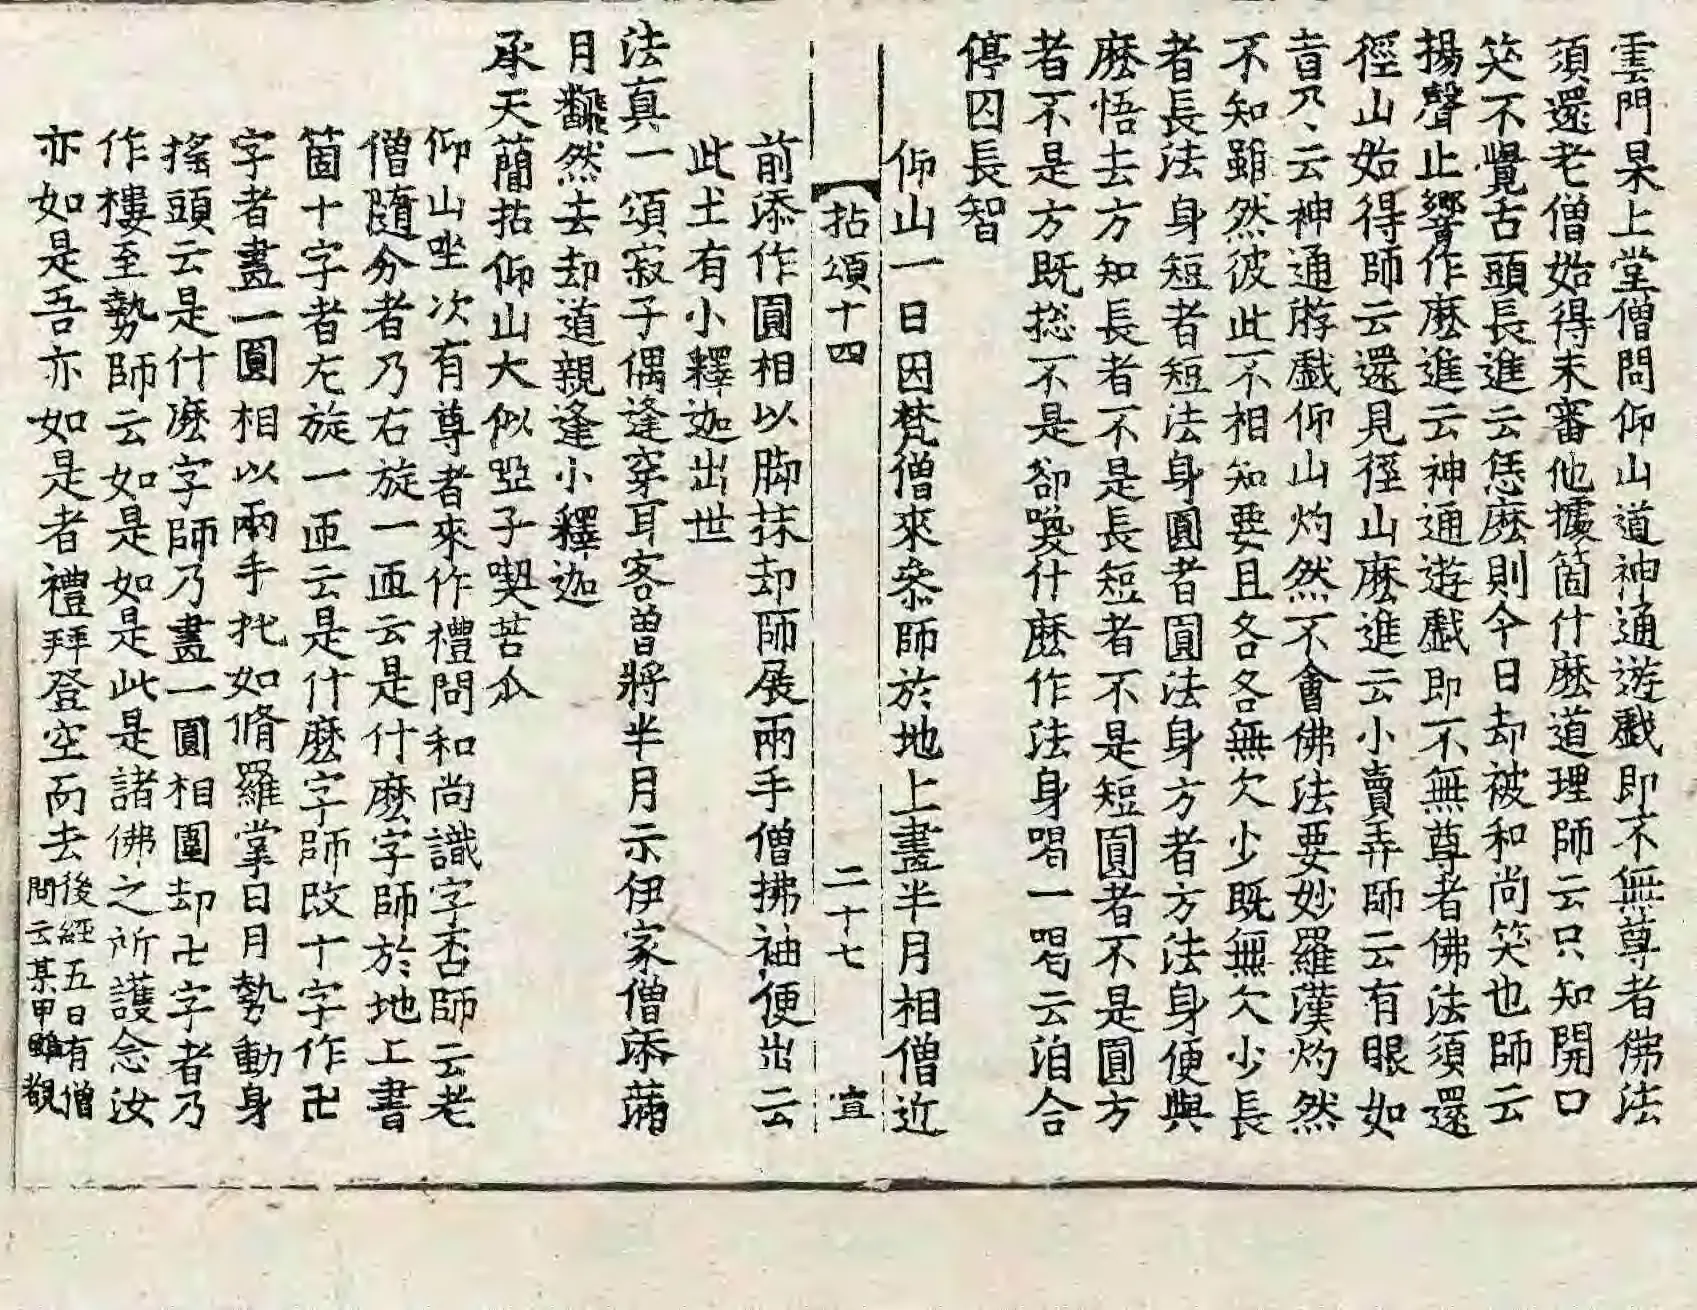 雲門杲上堂僧問仰山道神通遊戲即不無尊者佛法
須還老僧始得未審他據箇什麽道理師云只知開口
笑不覺舌頭長進云恁麽則今日却被和尚笑也師云
揚聲止響作麽進云神通遊戲即不無尊者佛法須還
徑山始得師云還見徑山麽進云小賣弄師云有眼如
盲乃云神通游戲仰山灼然不會佛法要妙羅漢灼然
不知雖然彼此不相知要且各各無欠少既無欠少長
者長法身短者短法身圓者圓法身方者方法身便與
麽悟去方知長者不是長短者不是短圓者不是圓方
者不是方既捴不是卻喚什麽作法身喝一喝云洎合
停囚長智
仰山一日因梵僧來叅師於地上畫半月相僧近
拈頌十四 二十七 宣
前添作圓相以脚抹却師展兩手僧拂袖便出云
此土有小釋迦出世
法真一頌寂子偶逢穿耳客曽將半月示伊家僧添蒲
月飜然去却道親逢小釋迦
承天簡拈仰山大似啞子喫苦瓜
仰山坐次有尊者來作禮問和尚識字否師云老
僧隨分者乃右旋一匝云是什麽字師於地上書
箇十字者左旋一匝云是什麽字師改十字作卍
字者畫一圓相以兩手托如脩羅掌日月勢動身
搖頭云是什麽字師乃畫一圓相圍却卍字者乃
作樓至勢師云如是如是此是諸佛之所護念汝
亦如是吾亦如是者禮拜登空而去後經五日有僧
問云某甲雖覩